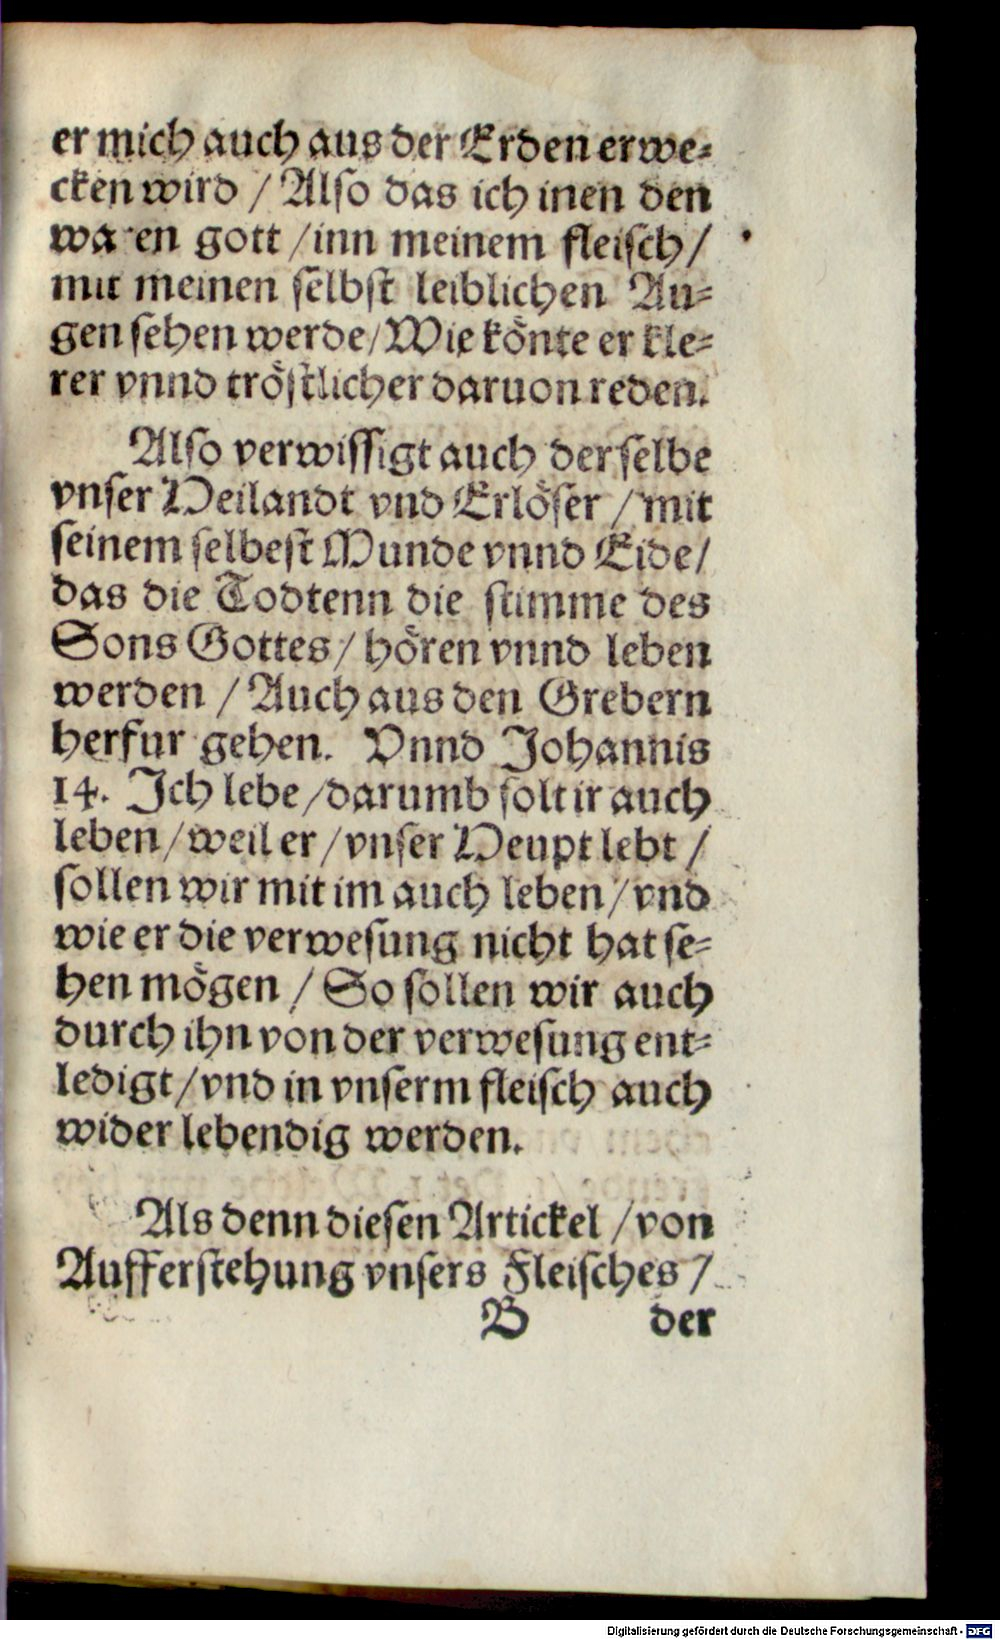 er mich auch aus der Erden erwe⸗
cken wird / Also das ich inen den
wa en gott / inn meinem fleisch /
mit meinen selbst leiblichen Au⸗
gen sehen werde / Wie könte er kle⸗
rer vnnd tröstlicher daruon reden.
Also verwissigt auch der selbe
vnser Heilandt vnd Erlöser / mit
seinem selbest Munde vnnd Eide /
das die Todtenn die stimme des
Sons Gottes / hören vnnd leben
werden / Auch aus den Grebern
herfur gehen. Vnnd Johannis
14. Ich lebe / darumb solt ir auch
leben / weil er / vnser Heupt lebt /
sollen wir mit im auch leben / vnd
wie er die verwesung nicht hat se⸗
hen mögen / So sollen wir auch
durch ihn von der verwesung ent⸗
ledigt / vnd in vnserm fleisch auch
wider lebendig werden.
Als denn diesen Artickel / von
Aufferstehung vnsers Fleisches /
B der
Digitalisierung gefördert durch die Deutsche Forschungsgemeinschaft - DFG